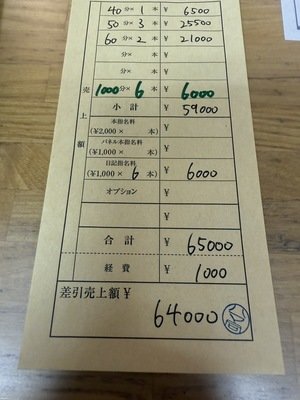 40分×1本 ¥ 6500
50分×3本 ¥ 25500
60分×2本 ¥ 21000
分× 本 ¥
分× 本 ¥
売上額
1000分×6本 ¥ 6000
小計 ¥ 59000
本指名料
(¥2,000× 本) ¥
パネル本指名料
(¥1,000× 本) ¥
日記指名料
(¥1,000×6本) ¥ 6000
オプション ¥
¥
合計 ¥ 65000
経費 ¥ 1000
差引売上額¥
64000